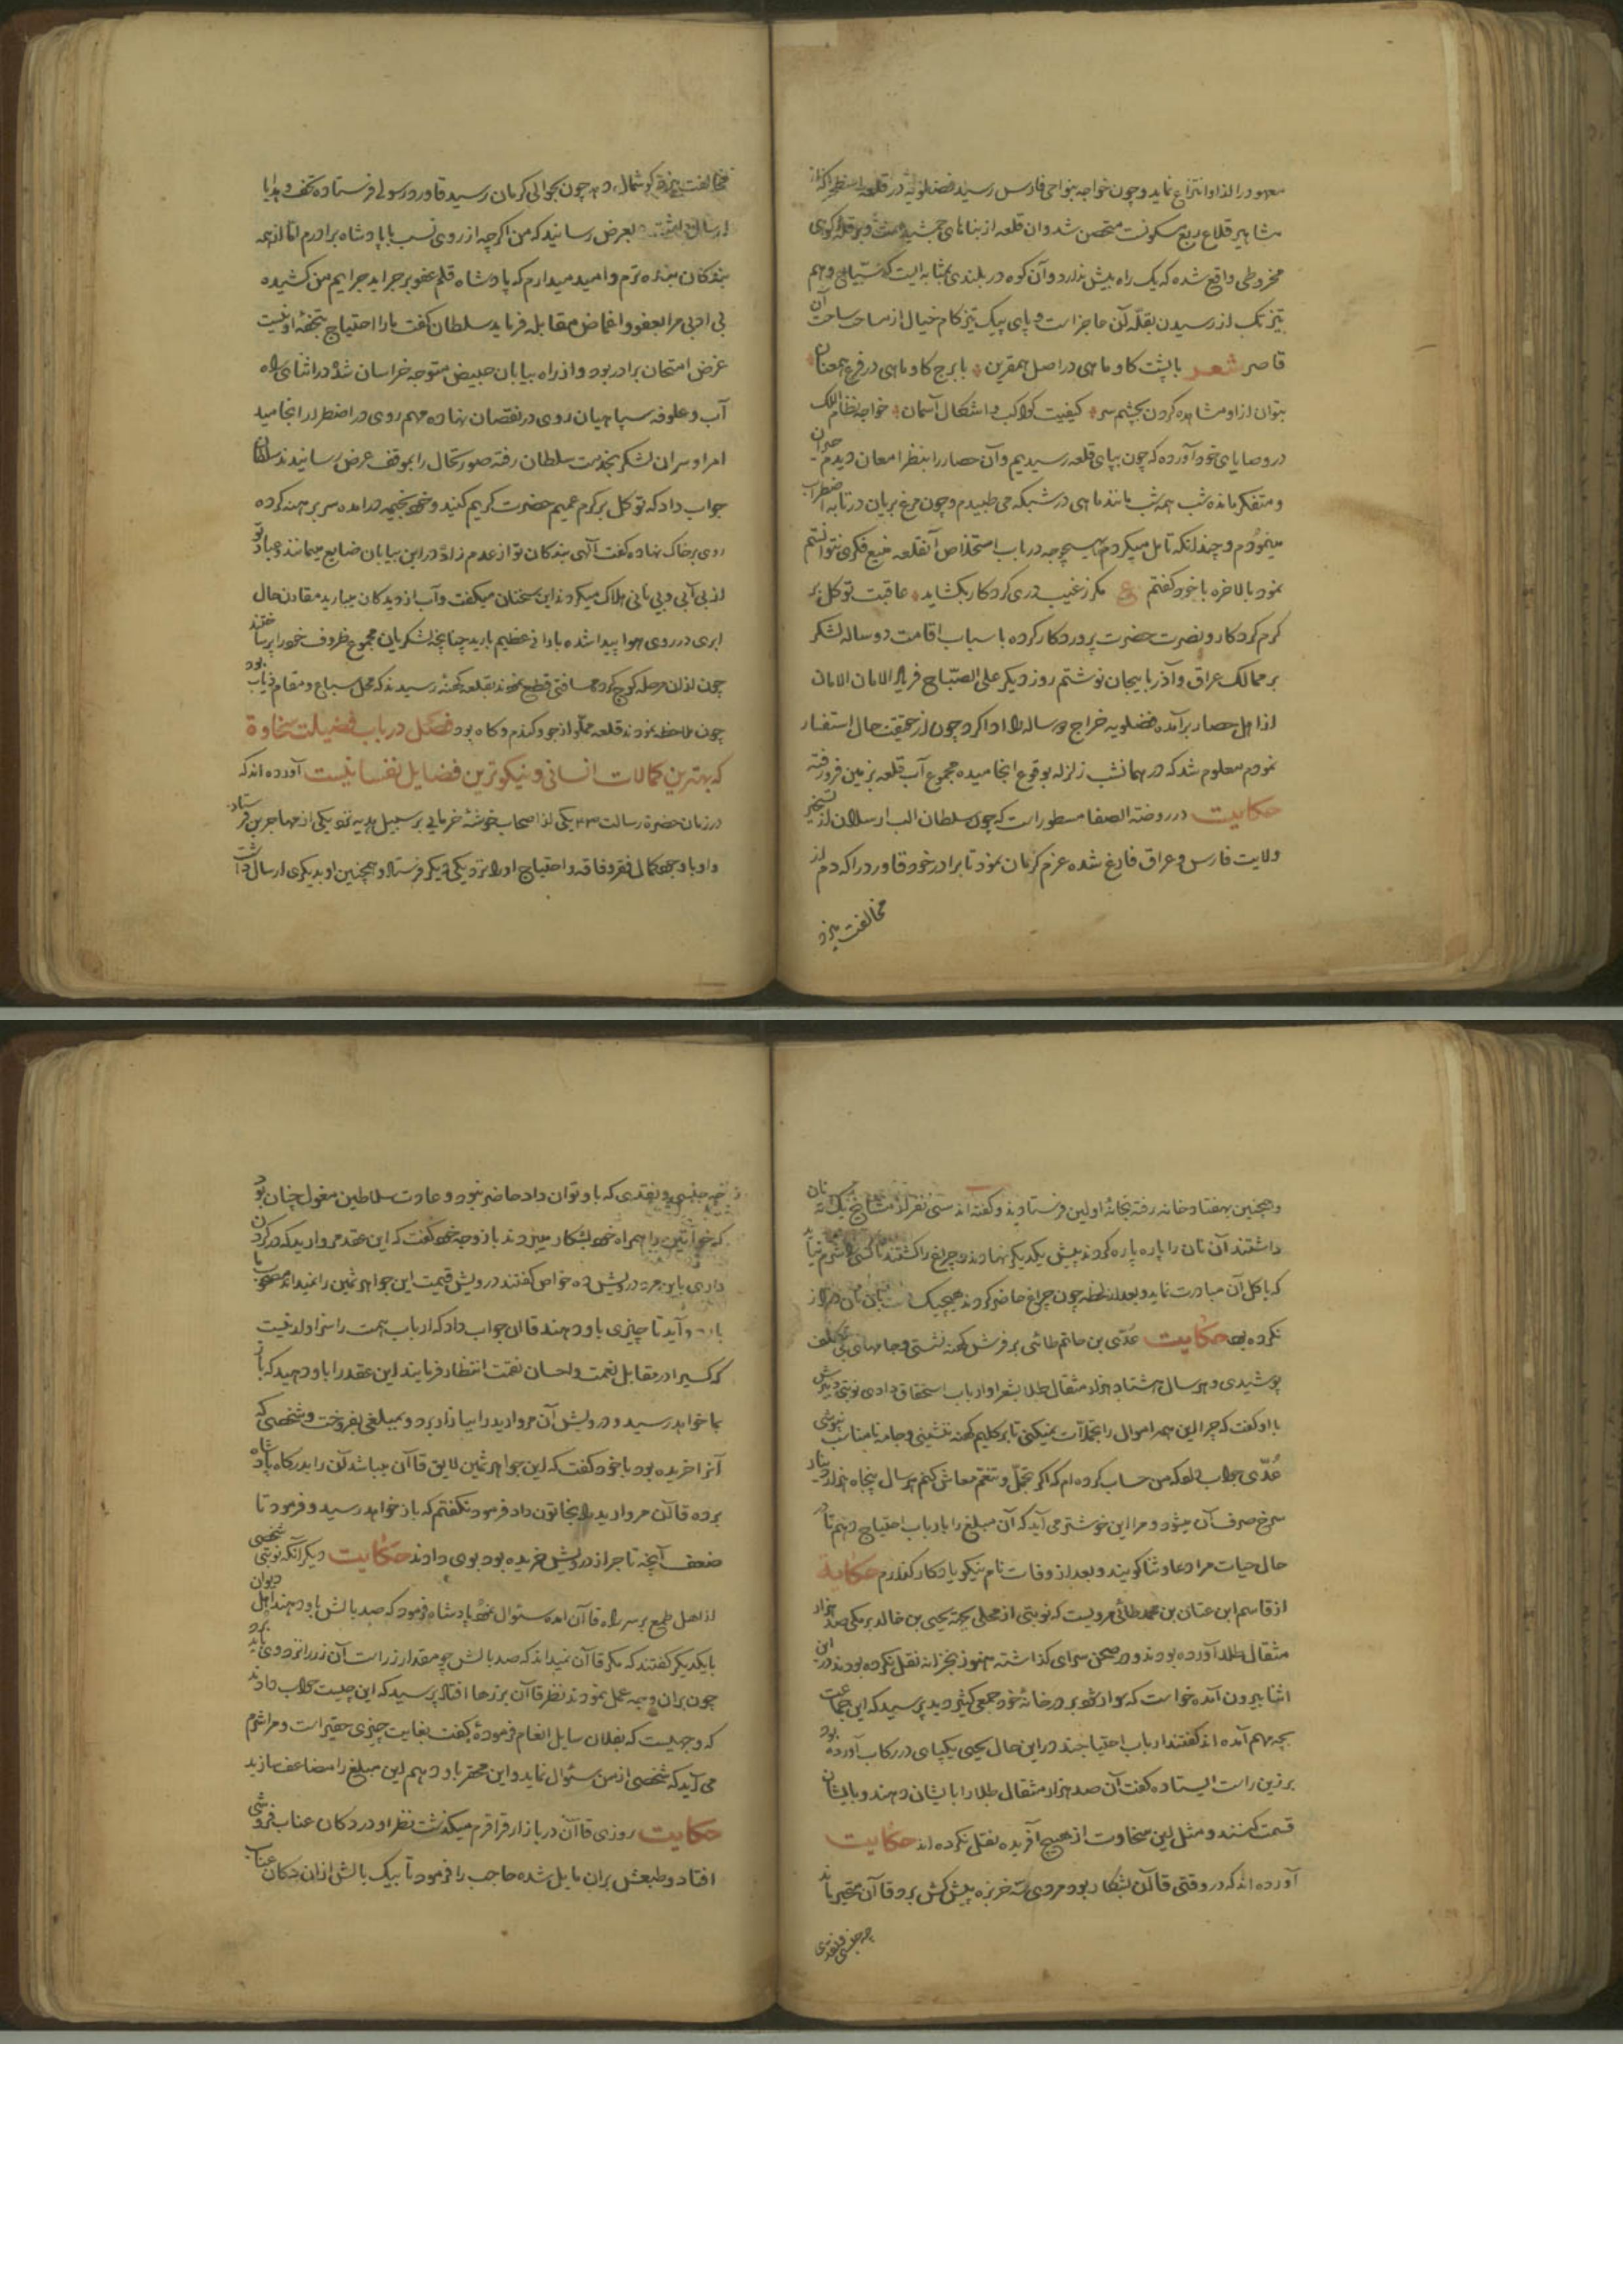 معهود را از او انتزاع نماید و چون خواجه بنواحی فارس رسید فضلویه در قلعه
مشاهیر قلاع ربع سکونست متحصن شد و ان قلعه از بناهای جمشید است و بر قله کوهی
مخروطی واقع شده که یک راه بیش ندارد و آن کوه در بلندی بمثابه ایست که سیاح وهم
تیز تک از رسیدن بقلّه آن عاجز است و پای پیک تیز کام خیال از مساحت ساحت آن
قاصر شعر با پشت کاو و ماهی در اصل همقرین با برج کاو و ماهی در فرع همعنان
بتوان ازو مشاهده کردن بچشم سر کیفیت کواکب و اشکال آسمان خواجه نظام الملک
در وصایای خود آورده که چون بپای قلعه رسیدیم و آن حصار را بنظر امعان دیدم حیران
و متفکر مانده شب همه شب مانند ماهی در شبکه می طپیدم و چون مرغ بریان در تابه اضطراب
مینمودم و چندانکه تامل میکردم بهیچوجه در باب استخلاص آنقلعه منیع فکری نتوانستم
نمود بالاخره با خود کفتم ع مکر ز غیب دری کردکار بکشاید عاقبت توکل بر
کرم کردکار و نصرت حضرت پروردکار کرده باسباب اقامت دو ساله لشکر
بر ممالک عراق و آذربایجان نوشتم روز دیکر علی الصّباح فریاد الامان الامان
از اهل حصار برآمده فضلویه خراج دو ساله را ادا کرد چون از حقیقت حال استفسار
نمودم معلوم شد که در همانشب زلزله بوقوع انجامیده مجموع آب قلعه بزمین فرو رفته
حکایت در روضته الصفا مسطور است که چون سلطان الب ارسلان از تسخیر
ولایت فارس و عراق فارغ شده عزم کرمان نمود تا برادر خود قاورد را که دم از
مخالفت میزد
مخالفت میزد کوشمال دهد چون بحوالی کرمان رسید قاورد رسولی فرستاده تحف و هدایا
ارسال داشت بعرض رسانید که من اکرچه از روی نسب با پادشاه برادرم اما از همه
بندکان بنده ترم و امید میدارم که پادشاه قلم عفو بر جراید جرایم من کشیده
بی ادبی مرا بعفو و اغماض مقابله فرماید سلطان کفت ما را احتیاج بتحفه او نیست
غرض امتحان برادر بود و از راه بیابان خبیص متوجه خراسان شد در اثنای راه
آب و علوفه سپاهیان روی در نقصان نهاده مهم روی در اضطرار انجامید
امرا و سران لشکر بخدمت سلطان رفته صورتحال را بموقف عرض رسانیدند سلطان
جواب داد که توکل بر کرم عمیم حضرت کریم کنید و خود بخیمه در امده سر برهنه کرده
روی بر خاک نهاده کفت آلهی بندکان تو از عدم زاد در این بیابان ضایع میمانند و عباد تو
از بی آبی و بی نانی هلاک میکردند این سخنان میکفت و آب از دیدکان میبارید مقارن حال
ابری در روی هوا پیدا شده بارانی عظیم بارید چنانچه لشکریان مجموع ظروف خود را پر ساختند
چون ازان مرحله کوچ کرده مسافتی قطع نمودند بقلعه کهنه رسیدند که محل سباع و مقام ذیاب بود
چون ملاحظه نمودند قلعه مملّو از جو و کندم و کاه بود فصل در باب فضیلت سخاوة
که بهترین کمالات انسانی و نیکوترین فضایل نفسانیست آورده اند که
در زمان حضرة رسالت یکی از اصحاب خوشهٔ خرمایی بر سبیل هدیه نزد یکی از مهاجرین فرستاد
و او با وجود کمال فقر و فاقه و احتیاج اورا نزد یکی دیکر فرستاد و همچنین او بدیکری ارسال داشت
و همچنین بهفتاد خانه رفته بخانهٔ اولین فرستادند و کفته اند سی نفر از مشایخ یک ته نان
داشتند آن نان را پاره پاره کردند پیش یکدیکر نهادند و چراغ را کشتند تا کسی شرم نیاید
که باکل آن مبادرت نماید و بعد از لحظه چون چراغ حاضر کردند هیچیک دست بان نان دراز
نکرده بود حکایت عُدّی بن حاتم طائی بر فرش کهنه نشستی و جامهای بی تکلف
پوشیدی و هر سال هشتاد هزار مثقال طلا بشعرا و ارباب استحقاق دادی نوبتی درویش
با او کفت که چرا این همه اموال را تجملات نمیکنی تا بر کلیم کهنه ننشینی و جامه نامناسب نپوشی
عُدّی جواب داد که من حساب کرده ام که اکر بتجمّل و تنعم معاش کنم هر سال پنجاه هزار دینار
سرخ صرف آن میشود و مرا این خوشتر می آید که آن مبلغ را بارباب احتیاج دهم تا در
حال حیات مرا دعا و ثنا کویند و بعد از وفات نام نیکو یادکار کذارم حکایة
از قاسم ابن عنان بن محمد طائی مرویست که نوبتی از محلی بجهة یحیی بن خالد برمکی صد هزار
مثقال طلا آورده بودند و در صحن سرای کذاشته هنوز بخزانه نقل نکرده بودند در این
اثنا بیرون آمده خواست که سوار شود بر در خانهٔ خود جمعی کثیر دید پرسید که این جماعت
بچه مهم آمده اند کفتند ارباب احتیاجند در این حال یحیی یکپای در رکاب آورده بود
بر زین راست ایستاده کفت آن صد هزار مثقال طلا را بایشان دهند و بایشان
قسمت کنند و مثل این سخاوت از هیچ آفریده نقل نکرده اند حکایت
آورده اند که در وقتی قاآن بشکار بود مردی سه خربزه پیش کش برد قاآن متحیر ماند
چه جنسی و نقدی
چه جنسی و نقدی که باو توان داد حاضر نبود و عادت سلاطین مغول چنان بود
که خواتین را همراه خود بشکار میبردند با زوجه خود کفت که این عقد مروارید که در کردن
داری باین مرد درویش ده خواص کفتند درویش قیمت این جواهر ثمین را نمیداند
باردو آید تا چیزی باو دهند قاان جواب داد که ارباب همت را سزاوار نیست
که کسیرا در مقابل نعمت و احسان نقمت انتظار فرمایند این عقد را باو دهید که باز
بما خواهد رسید و درویش آن مروارید را ببازار برد و بمبلغی بفروخت و شخصی که
آنرا خریده بود با خود کفت که این جواهر ثمین لایق قاآن میباشد آن را بدرکاه پادشاه
برده قاآن مروارید را بخاتون داد فرمود نکفتم که باز خواهد رسید و فرمود تا
ضعف آنچه تاجر از درویش خریده بود بوی دادند حکایت دیکر آنکه نوبتی شخصی
از اهل طمع بر سر راه قاآن امده سئوال نمود پادشاه فرمود که صد بالش باو دهند اهل دیوان
با یکدیکر کفتند که مکر قاآن نمیداند که صد بالش چه مقدار زر است آن زر را نزد وی باید برد
چون بران وجه عمل نمودند نظر قاآن بر زرها افتاد پرسید که این چیست جواب دادند
که وجهیست که بفلان سایل انعام فرمودهٔ کفت بغایت چیزی حقیر است و مرا شرم
می آید که شخصی از من سئوال نماید و این محقر باو دهم این مبلغ را مضاعف سازید
حکایت روزی قاآن در بازار قراقرم میکذشت نظر او در دکان عناب فروشی
افتاد و طبعش بران مایل شده حاجب را فرمود تا بیک بالش ازان دکان عناب